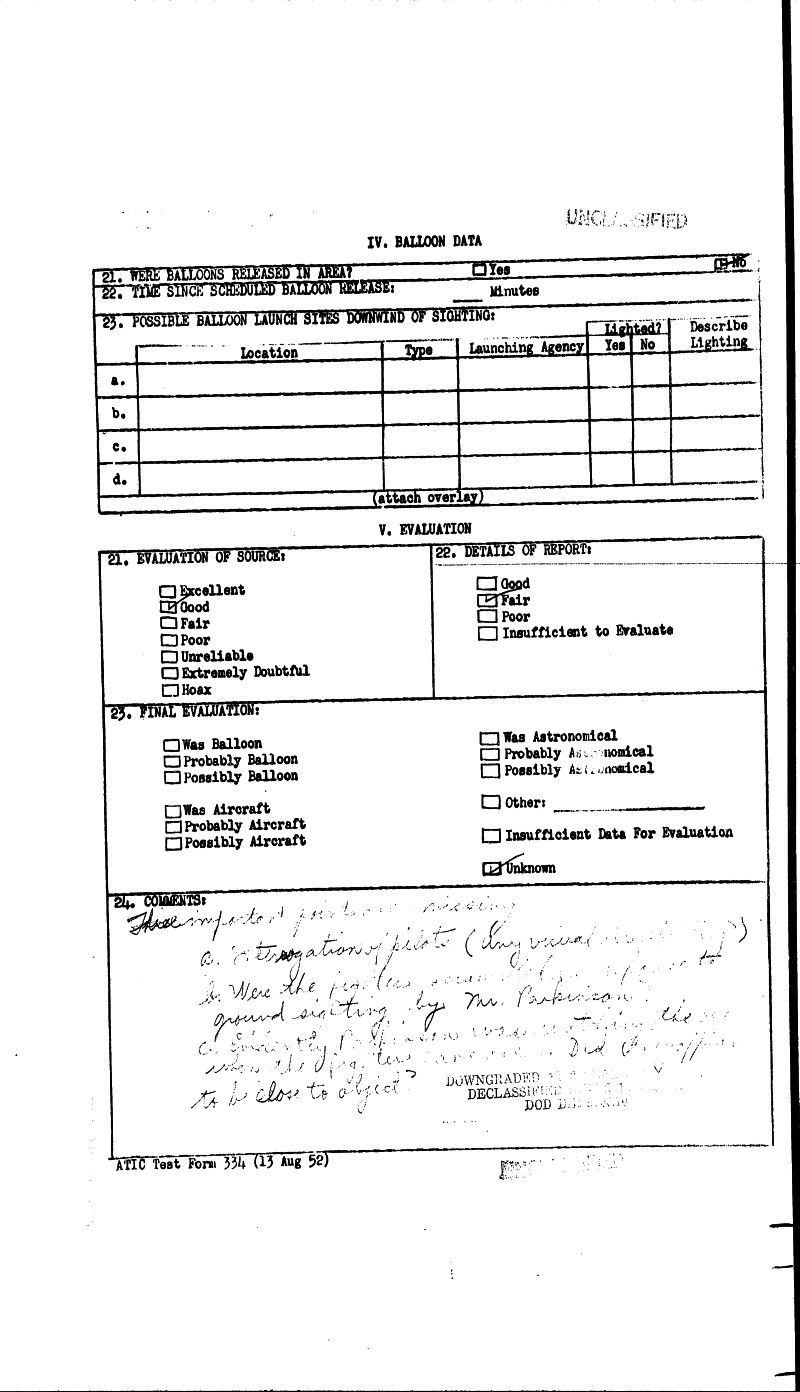 UNCLASSIFIED
IV. BALLOON DATA
21. WERE BALLOONS RELEASED IN AREA? Yes No
22. TIME SINCE SCHEDULED BALLOON RELEASE: ____ Minutes
23. POSSIBLE BALLOON LAUNCH SITES DOWNWIND OF SIGHTING:
Location Type Launching Agency Lighted? Yes No Describe Lighting
a.
b.
c.
d.
(attach overlay)
V. EVALUATION
21. EVALUATION OF SOURCE:
Excellent
Good
Fair
Poor
Unreliable
Extremely Doubtful
Hoax
22. DETAILS OF REPORT:
Good
Fair
Poor
Insufficient to Evaluate
23. FINAL EVALUATION:
Was Balloon
Probably Balloon
Possibly Balloon
Was Aircraft
Probably Aircraft
Possibly Aircraft
Was Astronomical
Probably Astronomical
Possibly Astronomical
Other:
Insufficient Data For Evaluation
Unknown
24. COMMENTS:
Three important points missing
a. Interrogation of pilots (Any visual
b. Were the fighters to
ground sighting by Mr. Parkinson
c. Evidently Parkinson was watching the
when the fighters Did
to be close to object?
DOWNGRADED
DECLASSIFIED
DOD
ATIC Test Form 334 (13 Aug 52)
UNCLASSIFIED